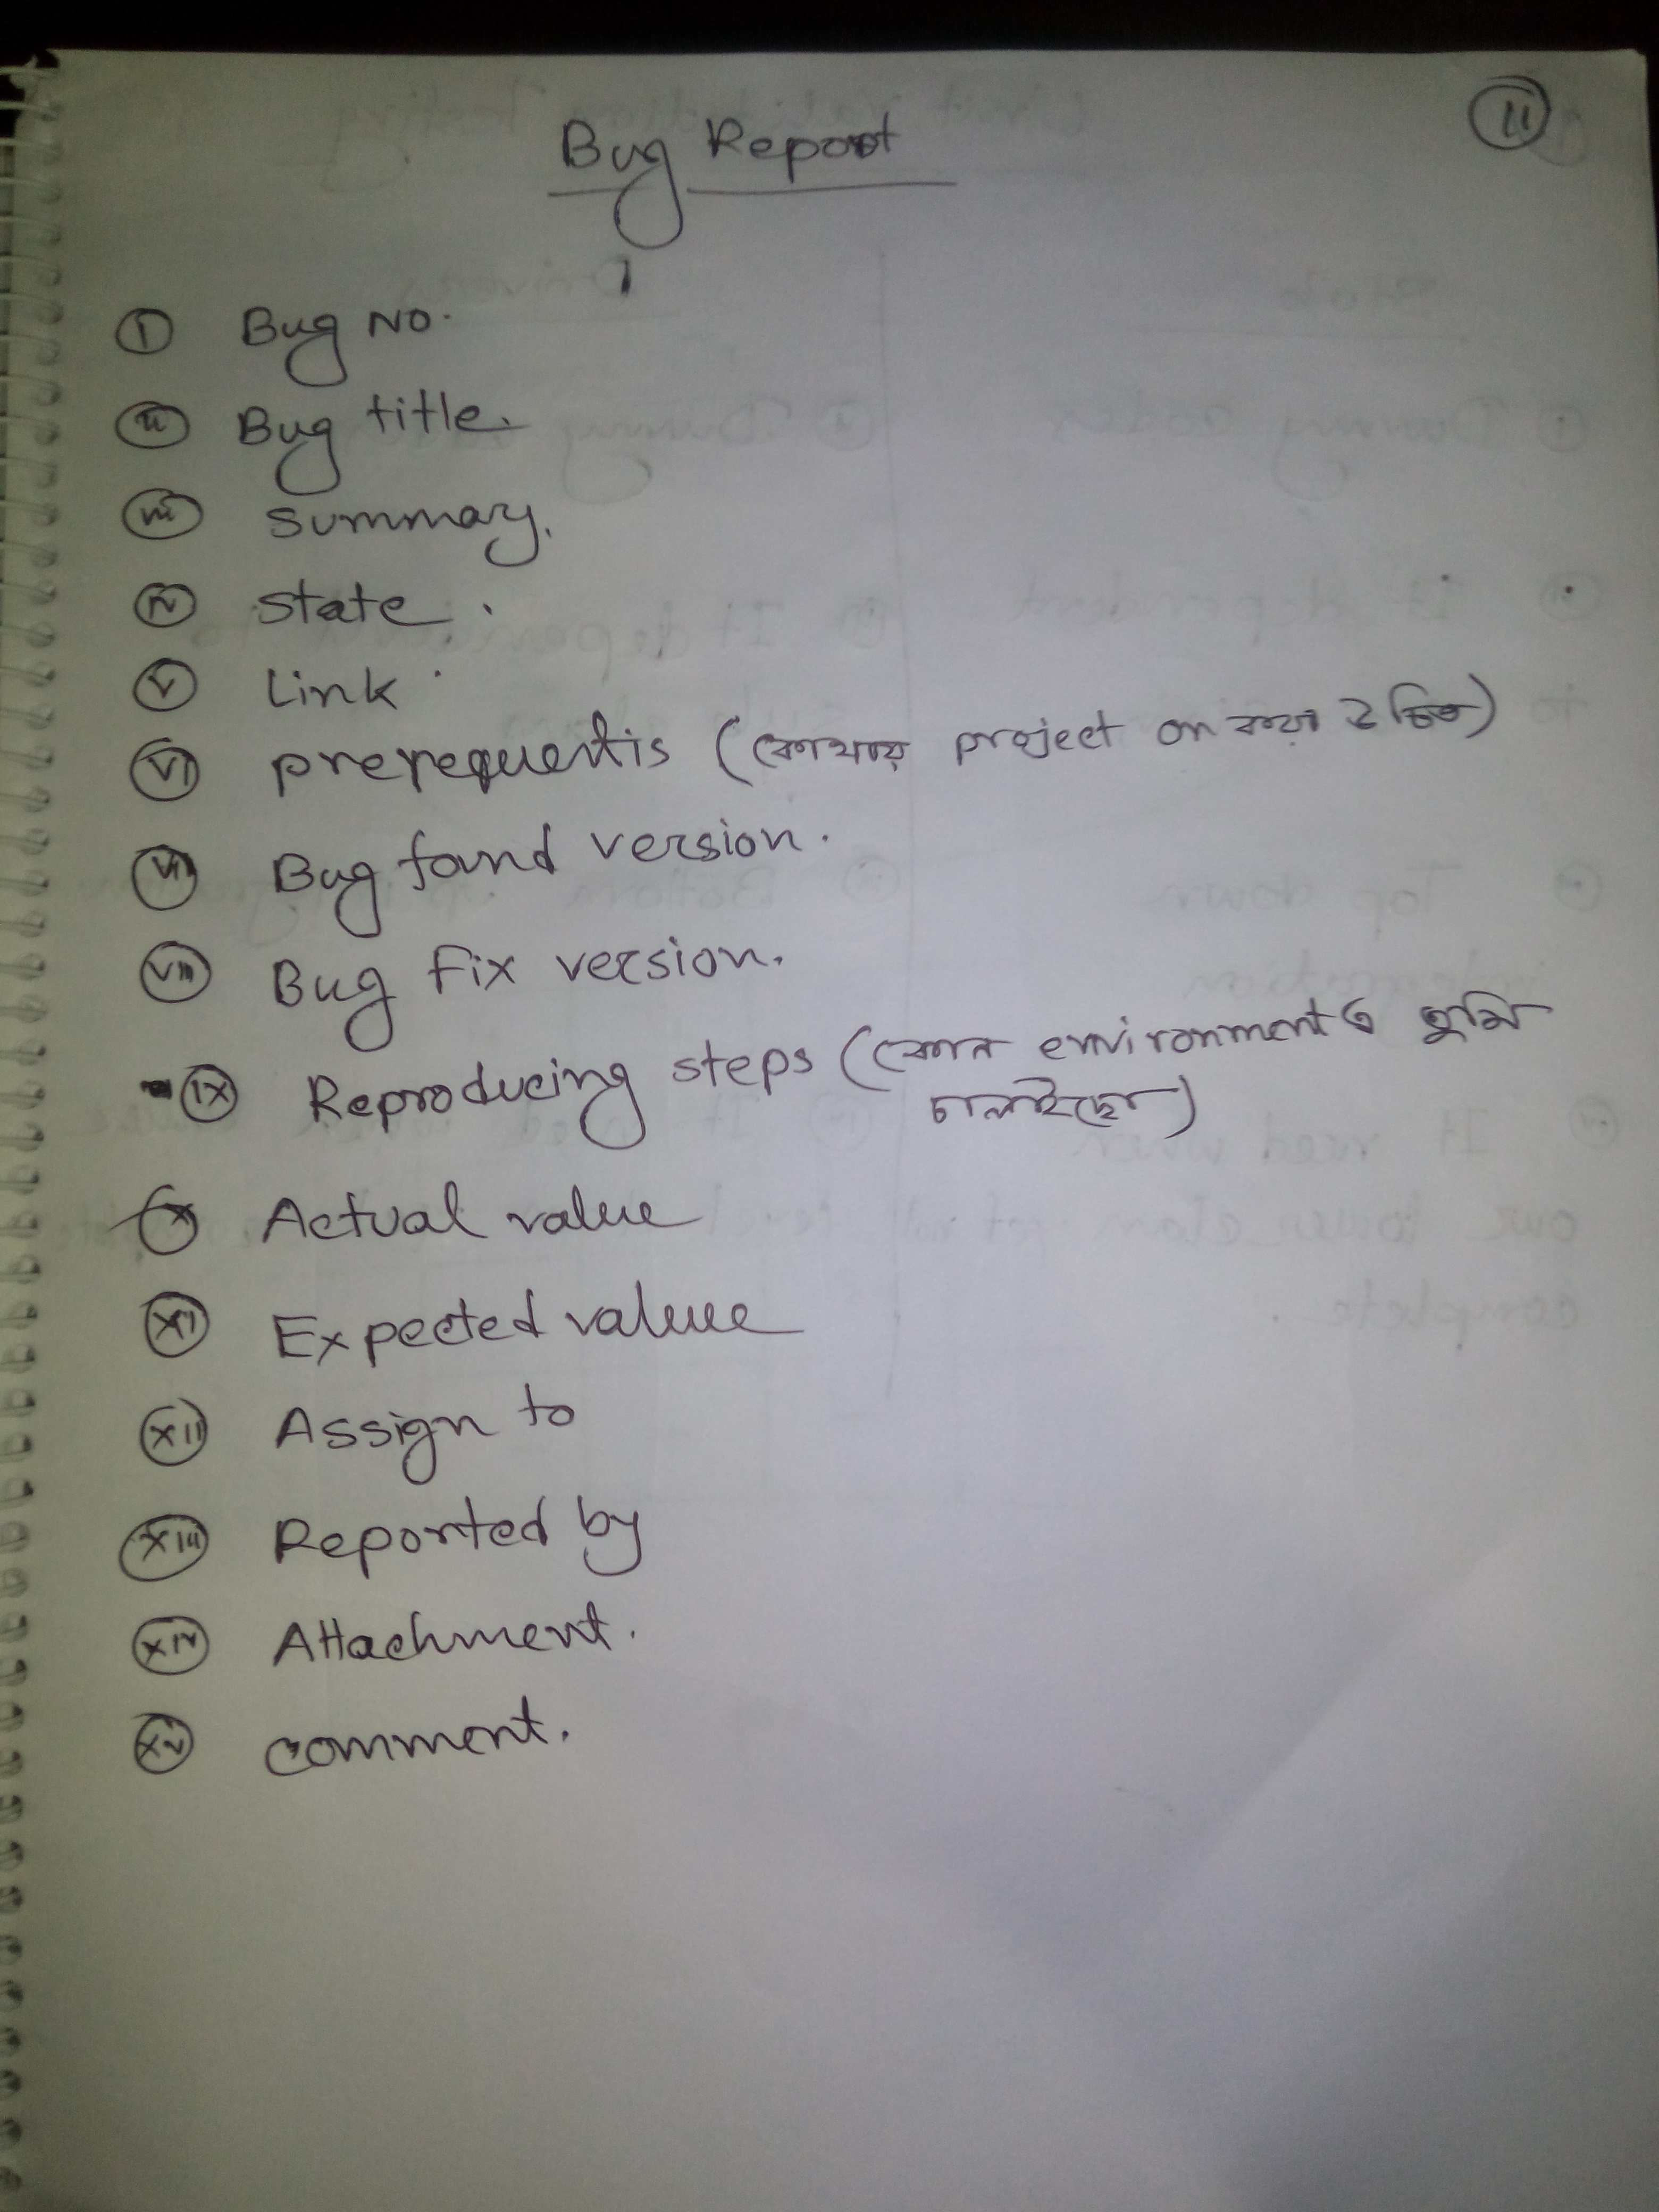 11
Bug Report
i Bug No.
ii Bug title.
iii summary.
iv state.
v Link.
vi prerequentis (কোথায় project on করা উচিত)
vii Bug found version.
viii Bug fix version.
ix Reproducing steps (কোন environment এ তুমি
চালাইছো)
x Actual value
xi Expected value
xii Assign to
xiii Reported by
xiv Attachment.
xv comment.